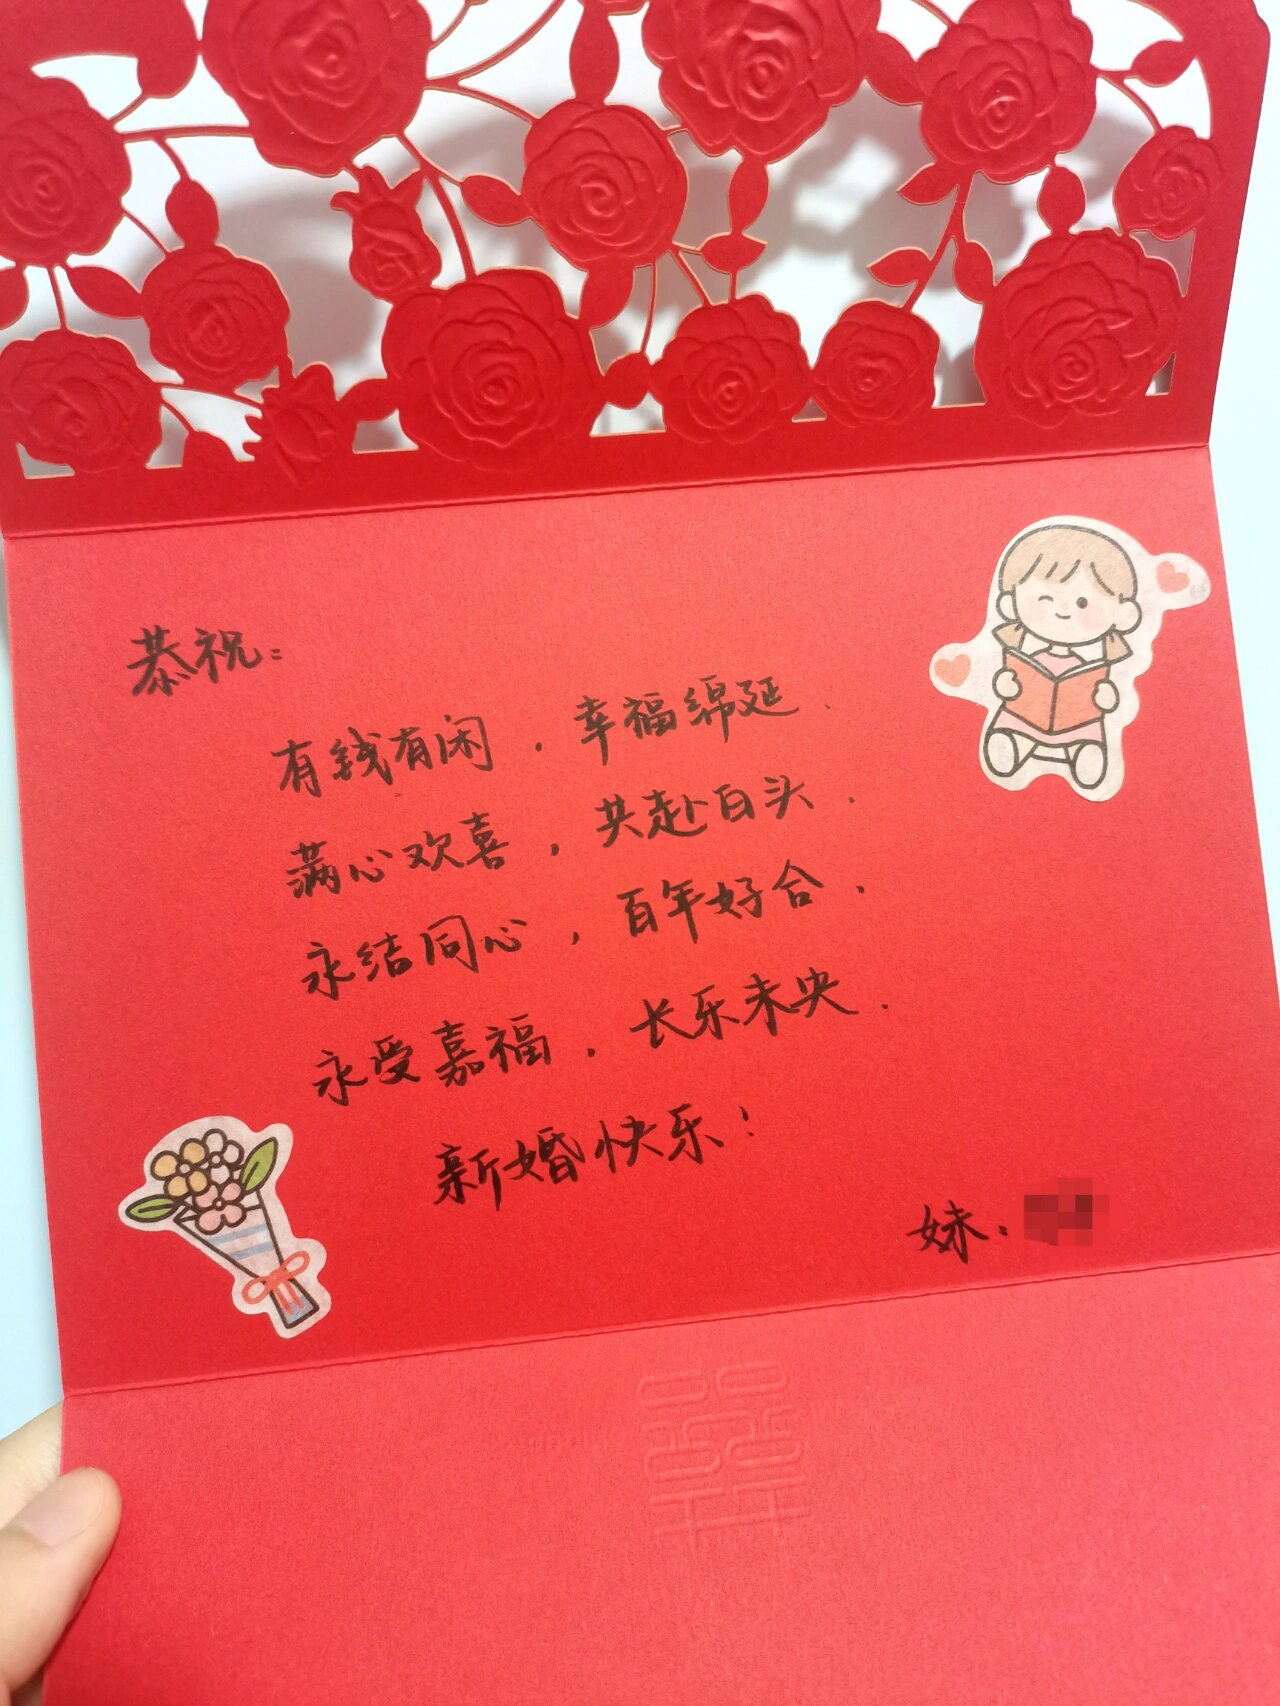 恭祝：
有钱有闲，幸福绵延．
满心欢喜，共赴白头．
永结同心，百年好合．
永受嘉福，长乐未央．
新婚快乐！
妹：
囍